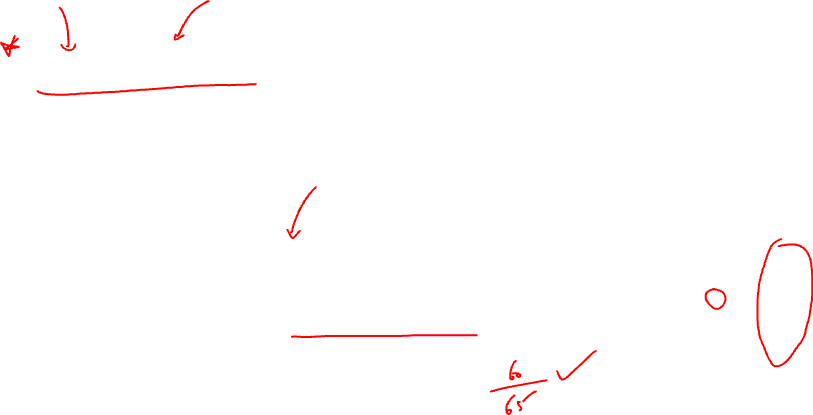 60
65